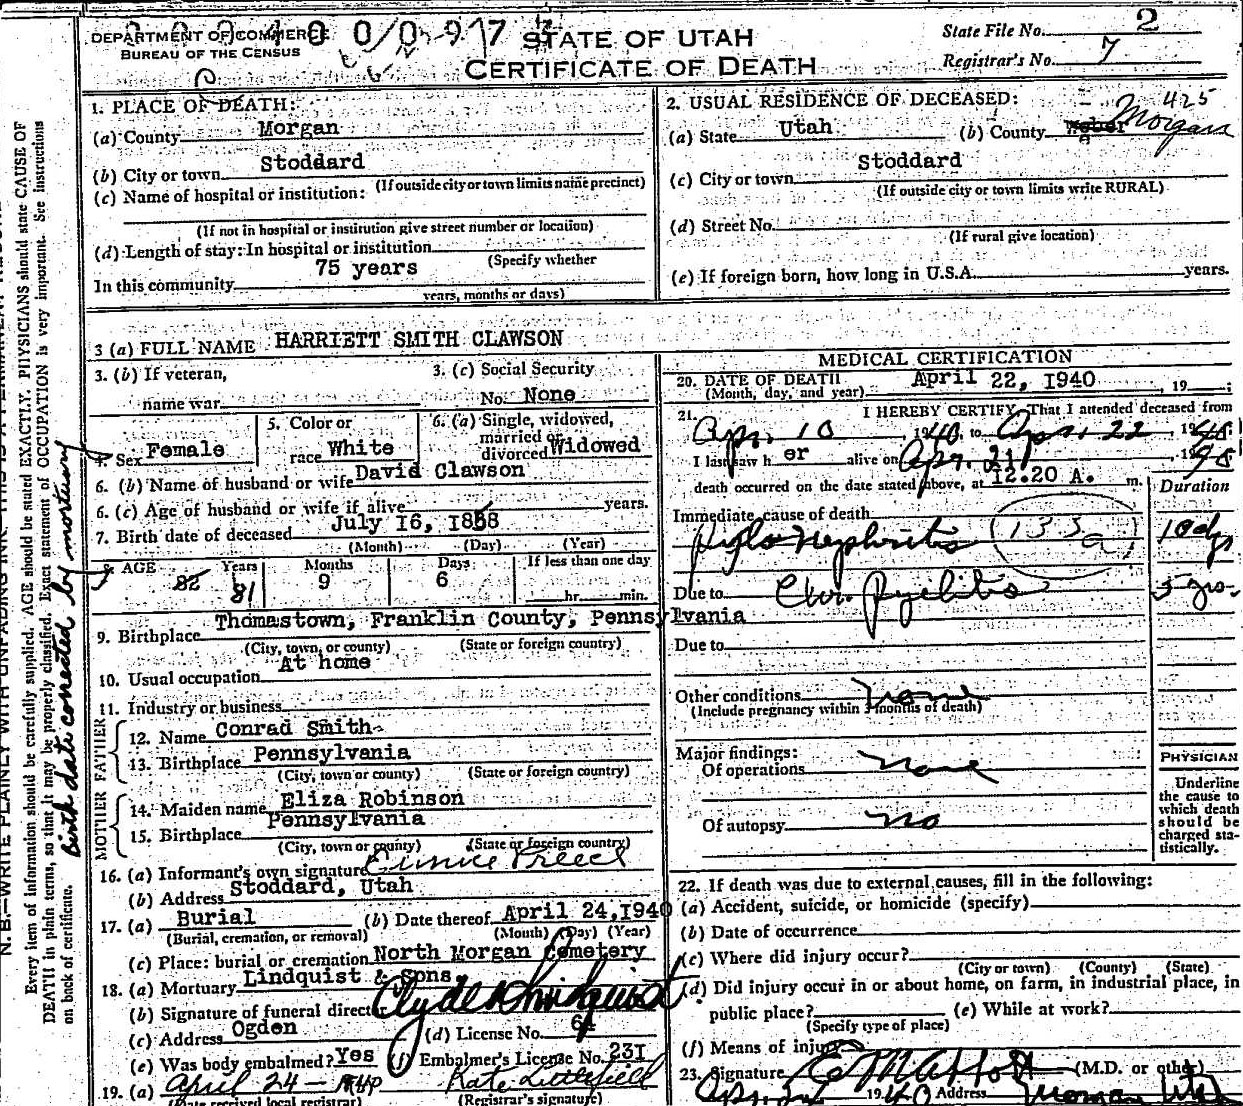 DEPARTMENT OF COMMERCE
BUREAU OF THE CENSUS
STATE OF UTAH
CERTIFICATE OF DEATH
State File No. 2
Registrar's No. 7
1. PLACE OF DEATH:
(a) County Morgan
(b) City or town Stoddard
(If outside city or town limits name precinct)
(c) Name of hospital or institution:
(If not in hospital or institution give street number or location)
(d) Length of stay: In hospital or institution
(Specify whether
In this community 75 years
years, months or days)
2. USUAL RESIDENCE OF DECEASED:
425
(a) State Utah (b) County Weber Morgan
(c) City or town Stoddard
(If outside city or town limits write RURAL)
(d) Street No.
(If rural give location)
(e) If foreign born, how long in U.S.A. years.
3 (a) FULL NAME HARRIETT SMITH CLAWSON
3. (b) If veteran,
name war
3. (c) Social Security
No. None
4. Sex Female
5. Color or
race White
6. (a) Single, widowed,
married or
divorced Widowed
6. (b) Name of husband or wife David Clawson
6. (c) Age of husband or wife if alive years.
7. Birth date of deceased July 16, 1858
(Month) (Day) (Year)
AGE Years Months Days If less than one day
82 81 9 6 hr. min.
9. Birthplace Thomastown, Franklin County, Pennsylvania
(City, town, or county) (State or foreign country)
10. Usual occupation At home
11. Industry or business
FATHER
12. Name Conrad Smith
13. Birthplace Pennsylvania
(City, town or county) (State or foreign country)
MOTHER
14. Maiden name Eliza Robinson
15. Birthplace Pennsylvania
(City, town or county) (State or foreign country)
16. (a) Informant's own signature Eunice Preece
(b) Address Stoddard, Utah
17. (a) Burial (b) Date thereof April 24, 1940
(Burial, cremation, or removal) (Month) (Day) (Year)
(c) Place: burial or cremation North Morgan Cemetery
18. (a) Mortuary Lindquist & Sons
(b) Signature of funeral director Clyde Lindquist
(c) Address Ogden (d) License No. 64
(e) Was body embalmed? Yes (f) Embalmer's License No. 231
19. (a) April 24 - 1940 Kate Littlefield
(Date received local registrar) (Registrar's signature)
MEDICAL CERTIFICATION
20. DATE OF DEATH April 22, 1940, 19 ;
(Month, day, and year)
21. I HEREBY CERTIFY, That I attended deceased from
Apr. 10, 1940, to Apr. 22, 1940
I last saw h er alive on Apr. 21, 1940
death occurred on the date stated above, at 12.20 A. m.
Duration
Immediate cause of death
Pylo Nephritis 133 a 10 dys
Due to Chr. Pyelitis 5 yrs.
Due to
Other conditions None
(Include pregnancy within 3 months of death)
Major findings:
Of operations none
Of autopsy no
PHYSICIAN
Underline
the cause to
which death
should be
charged sta-
tistically.
22. If death was due to external causes, fill in the following:
(a) Accident, suicide, or homicide (specify)
(b) Date of occurrence
(c) Where did injury occur?
(City or town) (County) (State)
(d) Did injury occur in or about home, on farm, in industrial place, in
public place? (e) While at work?
(Specify type of place)
(f) Means of injury
23. Signature (M.D. or other)
1940 Address Morgan Utah
N. B.—WRITE PLAINLY WITH UNFADING INK. THIS IS A PERMANENT
Every item of information should be carefully supplied. AGE should be stated EXACTLY. PHYSICIANS should state CAUSE OF
DEATH in plain terms, so that it may be properly classified. Exact statement of OCCUPATION is very important. See instructions
on back of certificate.
Birth date corrected by mortuary